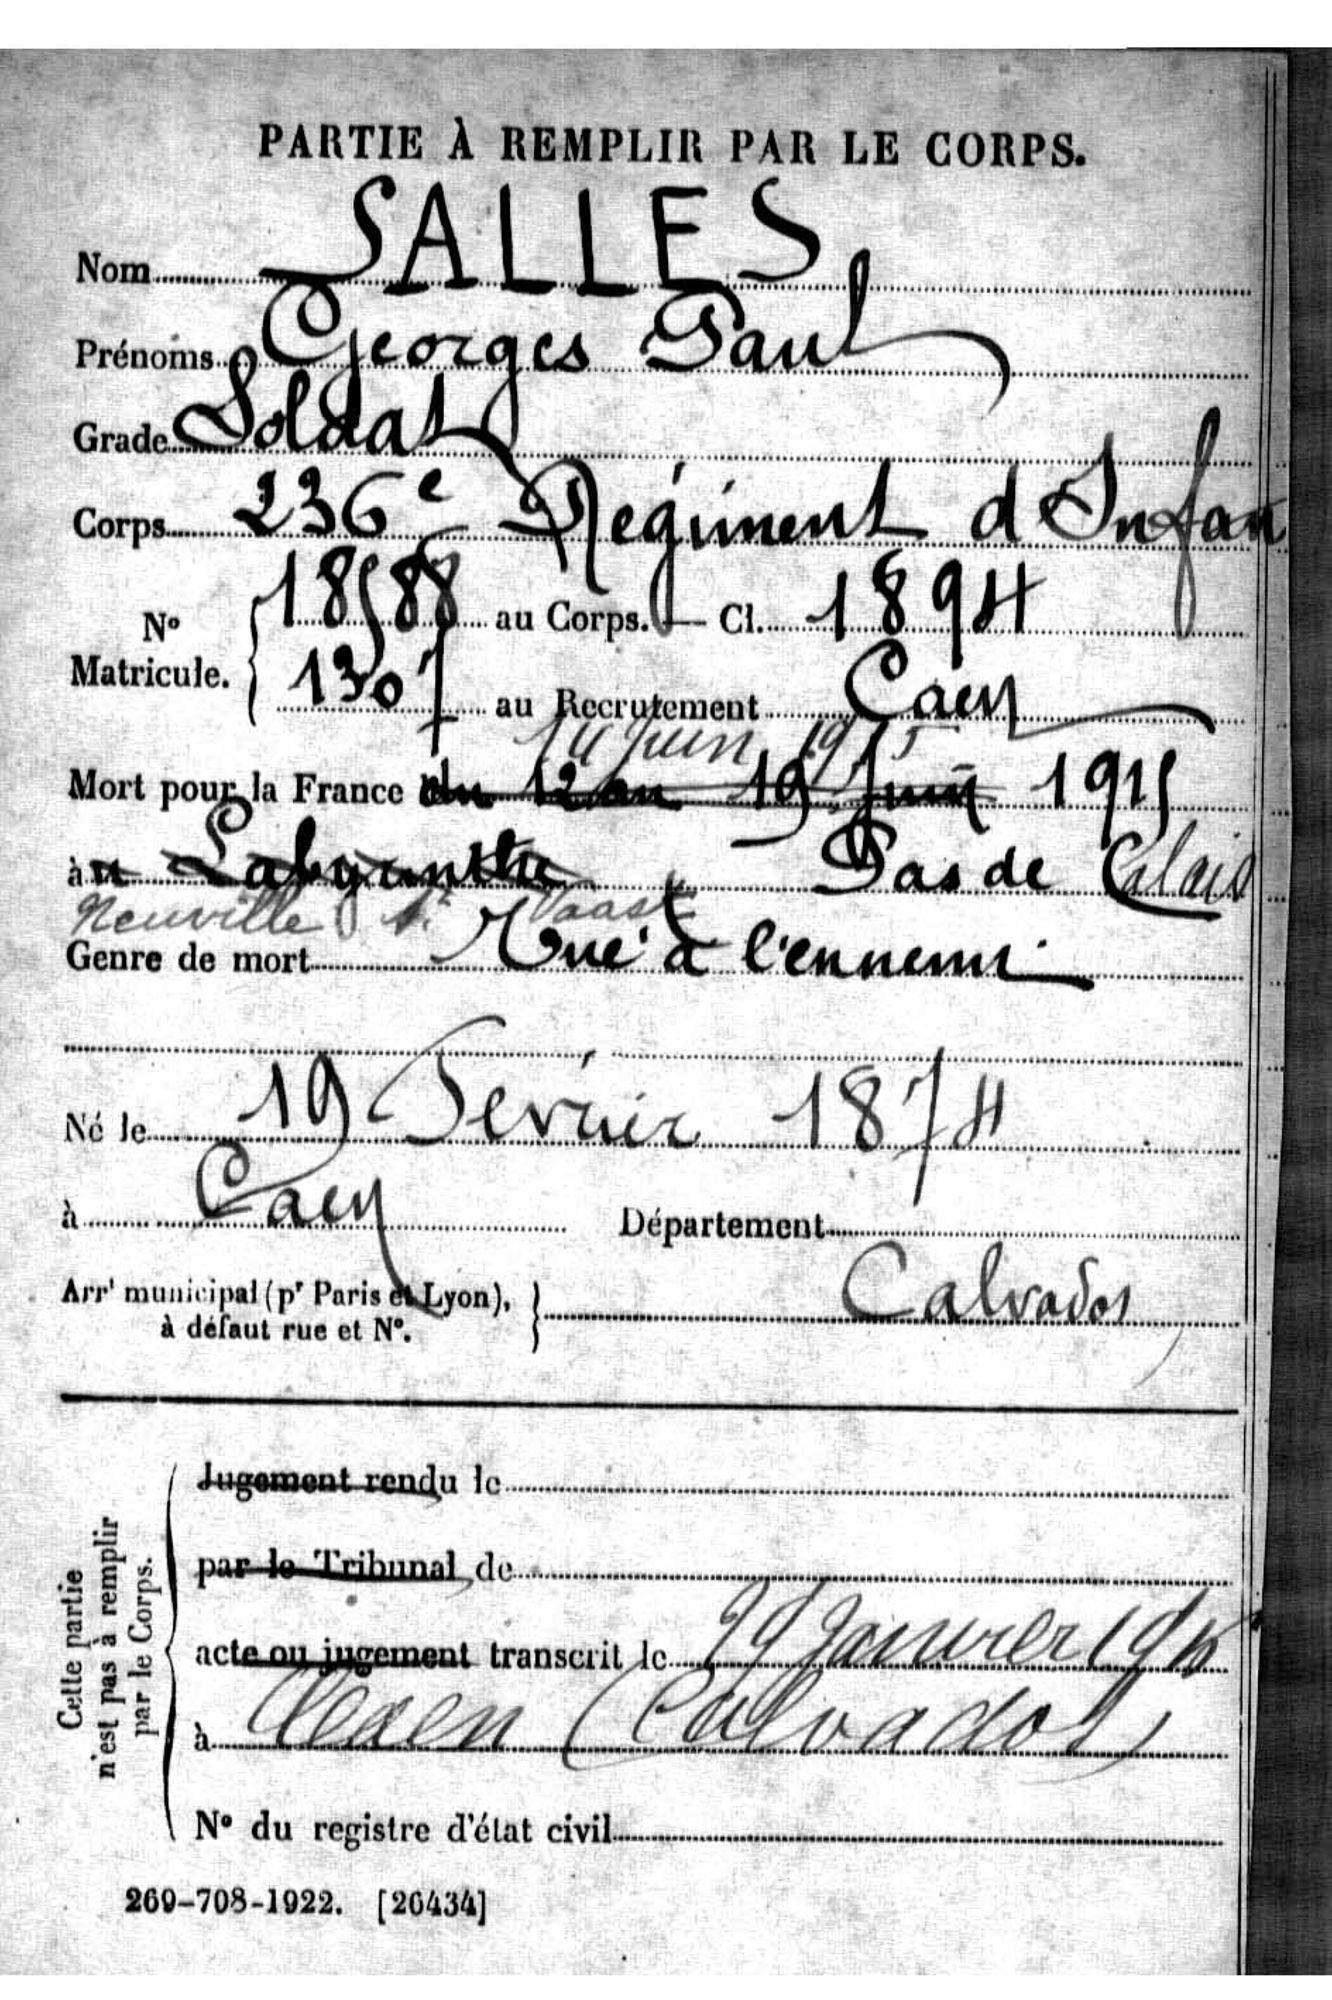 PARTIE À REMPLIR PAR LE CORPS.
Nom SALLES
Prénoms Georges Paul
Grade Soldat
Corps 236e Régiment d'Infan
No Matricule. 18588 au Corps. — Cl. 1894
1307 au Recrutement Caen
14 Juin 1915
Mort pour la France du 12 au 19 Juin 1915
à u Labyrinthe Pas de Calais
Neuville St Vaast
Genre de mort Tué à l'ennemi
Né le 19 Février 1874
à Caen Département
Calvados
Arrt municipal (pr Paris et Lyon),
à défaut rue et No.
Cette partie
n'est pas à remplir
par le Corps.
Jugement rendu le
par le Tribunal de
acte ou jugement transcrit le Janvier
à Caen (Calvados)
No du registre d'état civil
269-708-1922. [26434]